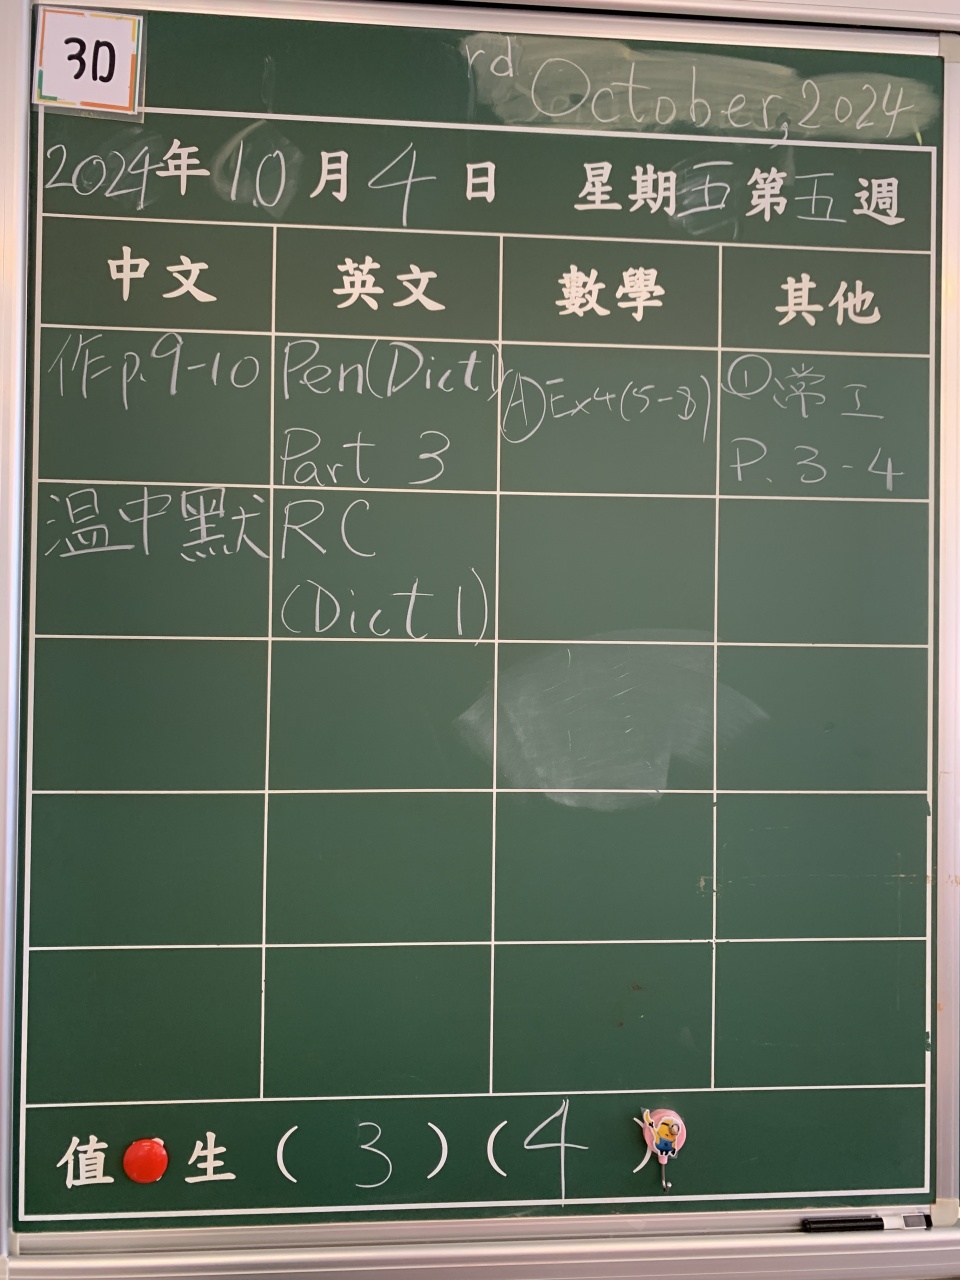 3D
rd October, 2024
2024年10月4日 星期五第五週
中文 英文 數學 其他
作p.9-10 Pen(Dict1) Ⓐ Ex4(5-8) ① 常工
Part 3 P.3-4
温中默 RC
(Dict 1)
值 生 ( 3 ) ( 4 )